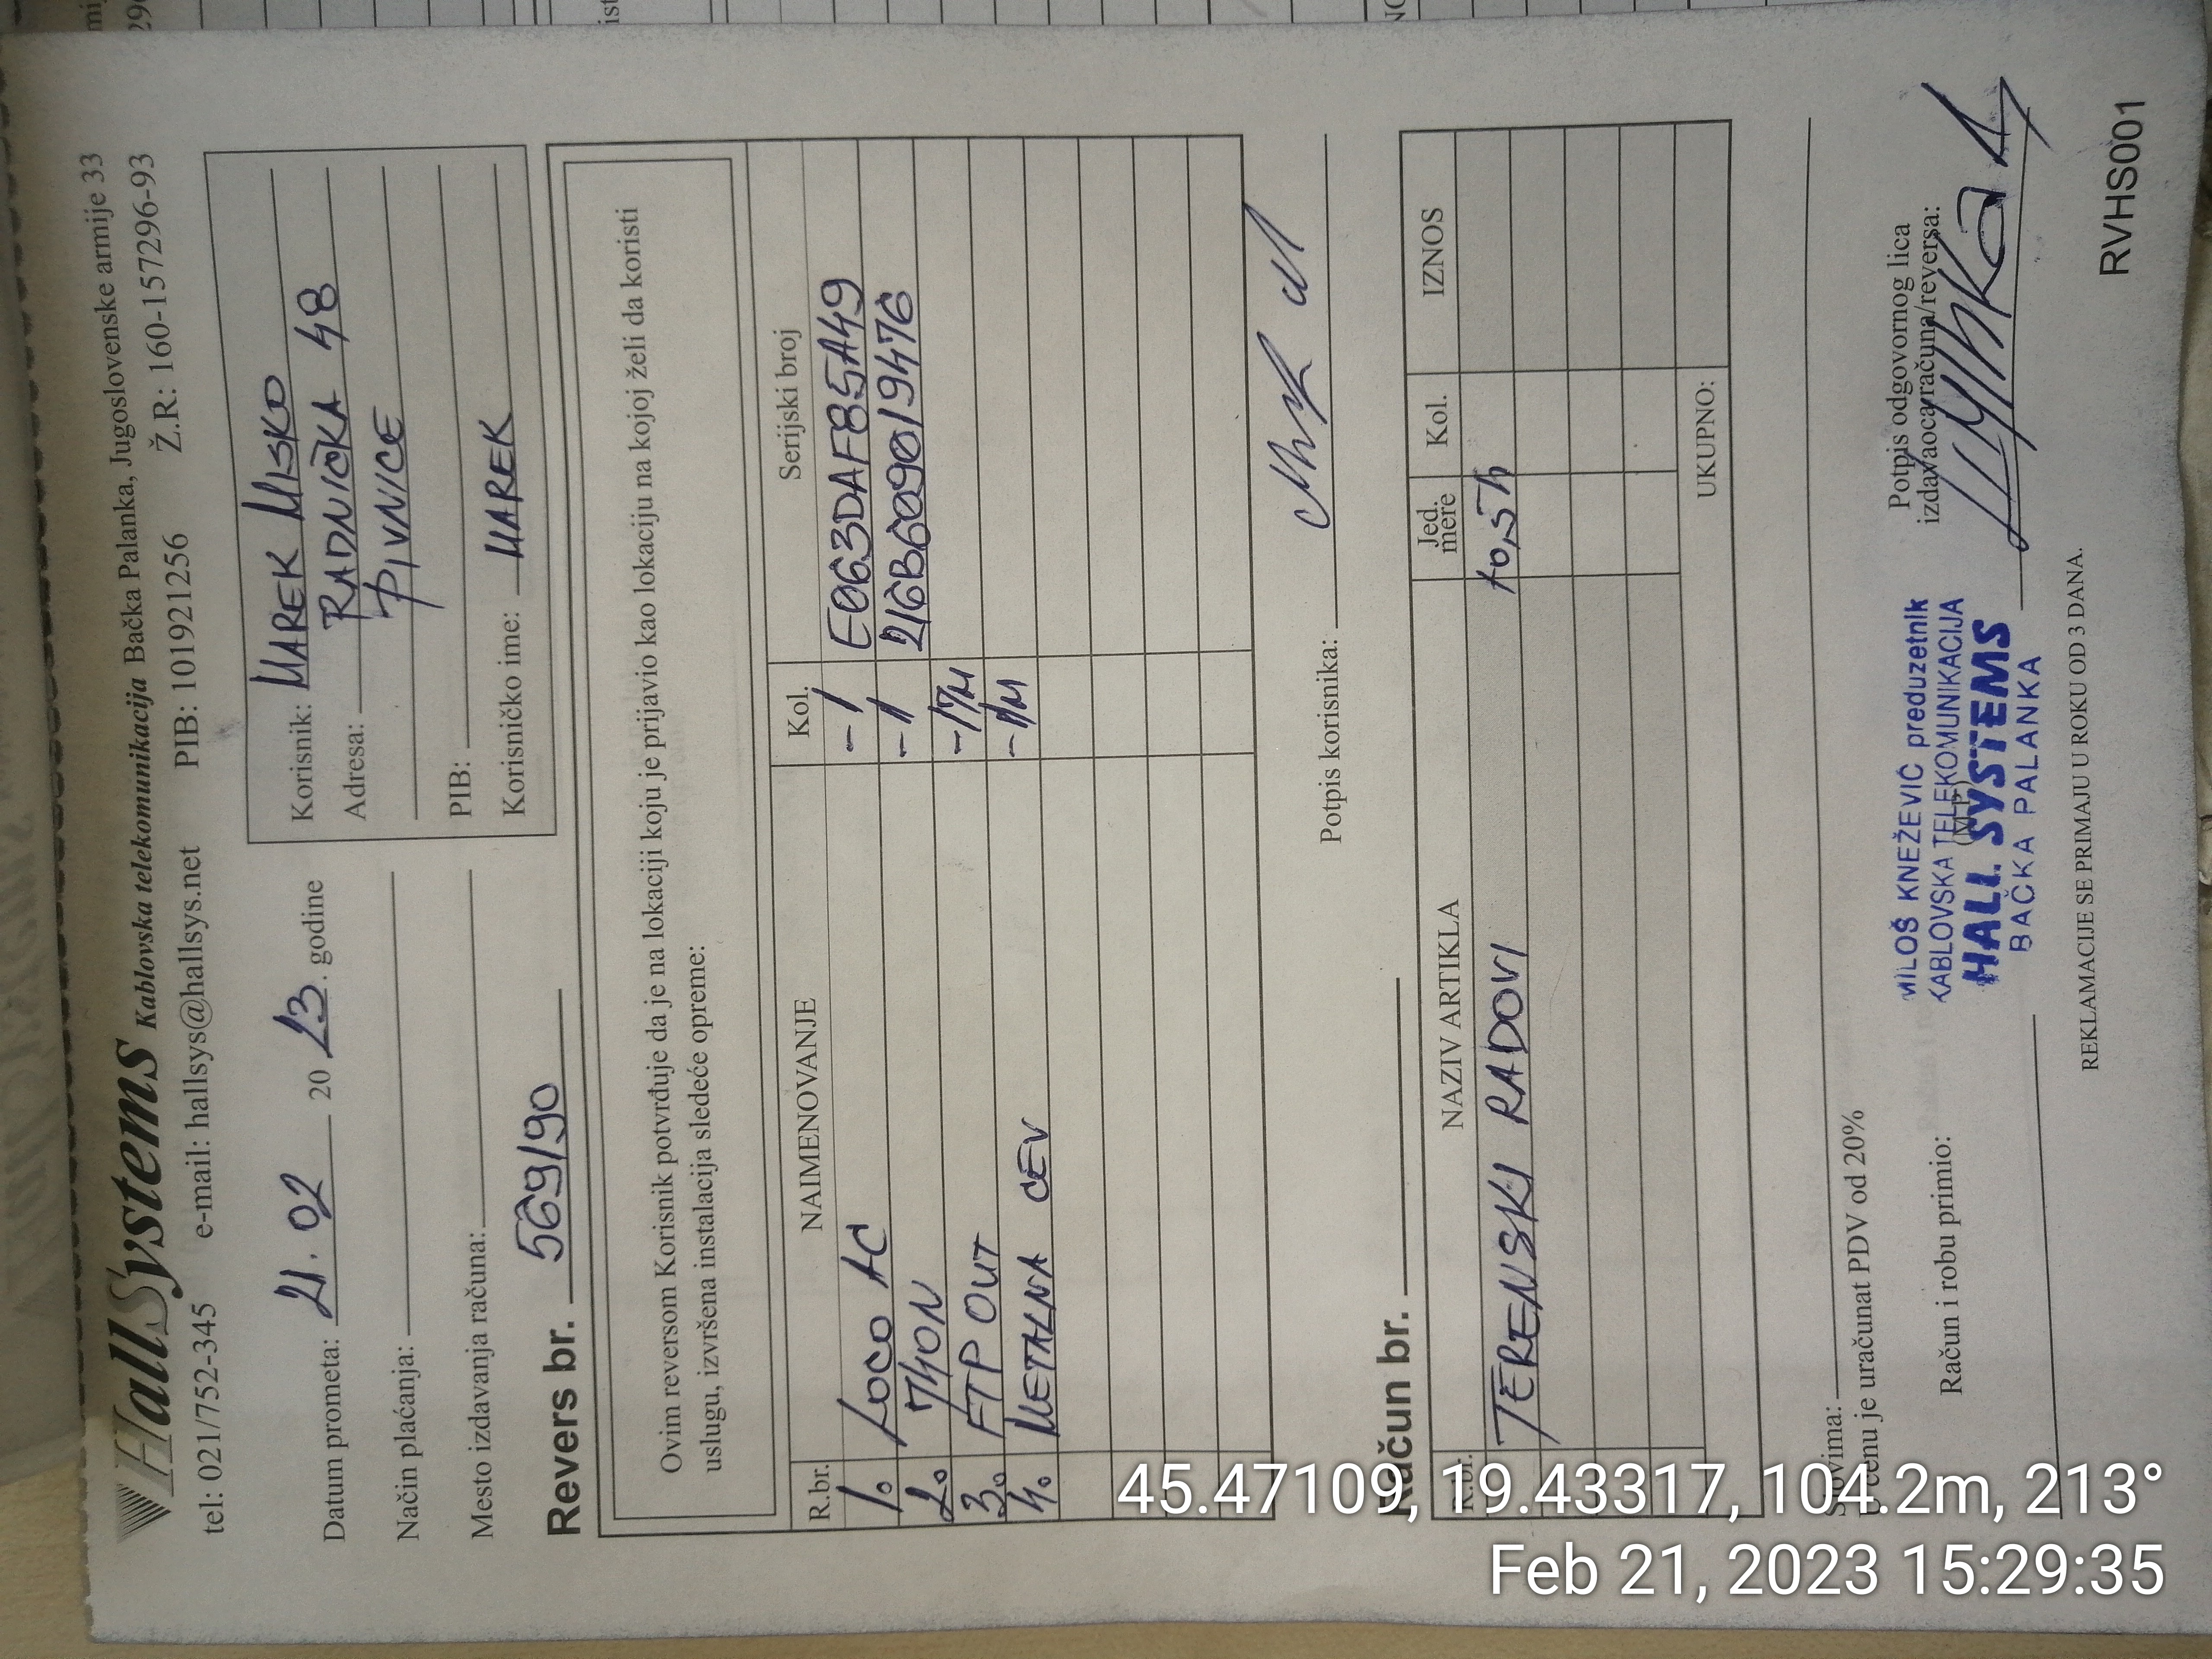 HallSystems Kablovska telekomunikacija Bačka Palanka, Jugoslovenske armije 33
tel: 021/752-345 e-mail: hallsys@hallsys.net PIB: 101921256 Ž.R: 160-157296-93
Datum prometa: 21.02 2023. godine
Način plaćanja:
Mesto izdavanja računa:
Korisnik: MAREK MISKO
Adresa: RADNIČKA 48
PIVNICE
PIB:
Korisničko ime: MAREK
Revers br. 569/90
Ovim reversom Korisnik potvrđuje da je na lokaciji koju je prijavio kao lokaciju na kojoj želi da koristi
uslugu, izvršena instalacija sledeće opreme:
R.br. NAIMENOVANJE Kol. Serijski broj
1. LOCO AC -1 E063DAF85A49
2. 740N -1 216B609019476
3. FTP OUT -17M
4. METALNA CEV -1M
Potpis korisnika:
Račun br.
R.br. NAZIV ARTIKLA Jed. mere Kol. IZNOS
TERENSKI RADOVI 10,5h
UKUPNO:
Slovima:
U cenu je uračunat PDV od 20%
Račun i robu primio:
(M.P.)
MILOŠ KNEŽEVIĆ preduzetnik
KABLOVSKA TELEKOMUNIKACIJA
HALL SYSTEMS
BAČKA PALANKA
Potpis odgovornog lica
izdavaoca računa/reversa:
REKLAMACIJE SE PRIMAJU U ROKU OD 3 DANA.
RVHS001
45.47109, 19.43317, 104.2m, 213°
Feb 21, 2023 15:29:35